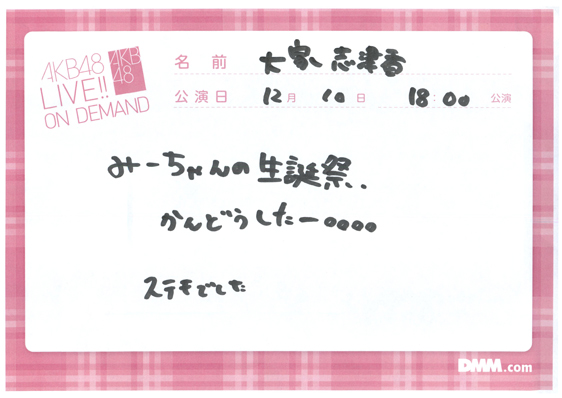 AKB48
LIVE!!
ON DEMAND
AKB
48
名前 大家志津香
公演日 12月 10日 18:00 公演
みーちゃんの生誕祭、
かんどうしたー。。。。
ステキでした
DMM.com